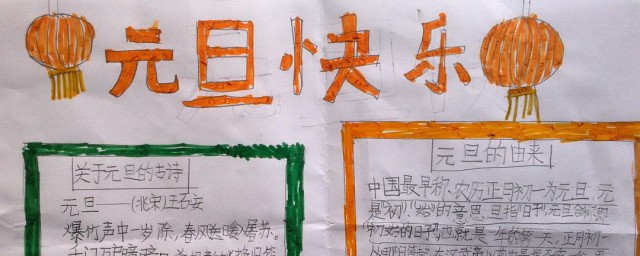 元旦快乐
关于元旦的古诗
元旦——(北宋)王石安
爆竹声中一岁除,春风送暖屠苏.
元旦的由来
中国最早初、农历正月初一为元旦,元
是“初”“始”的意思,旦指“日子”,元旦合称即
“初始的日子”,也就是一年的第一天,正月初一